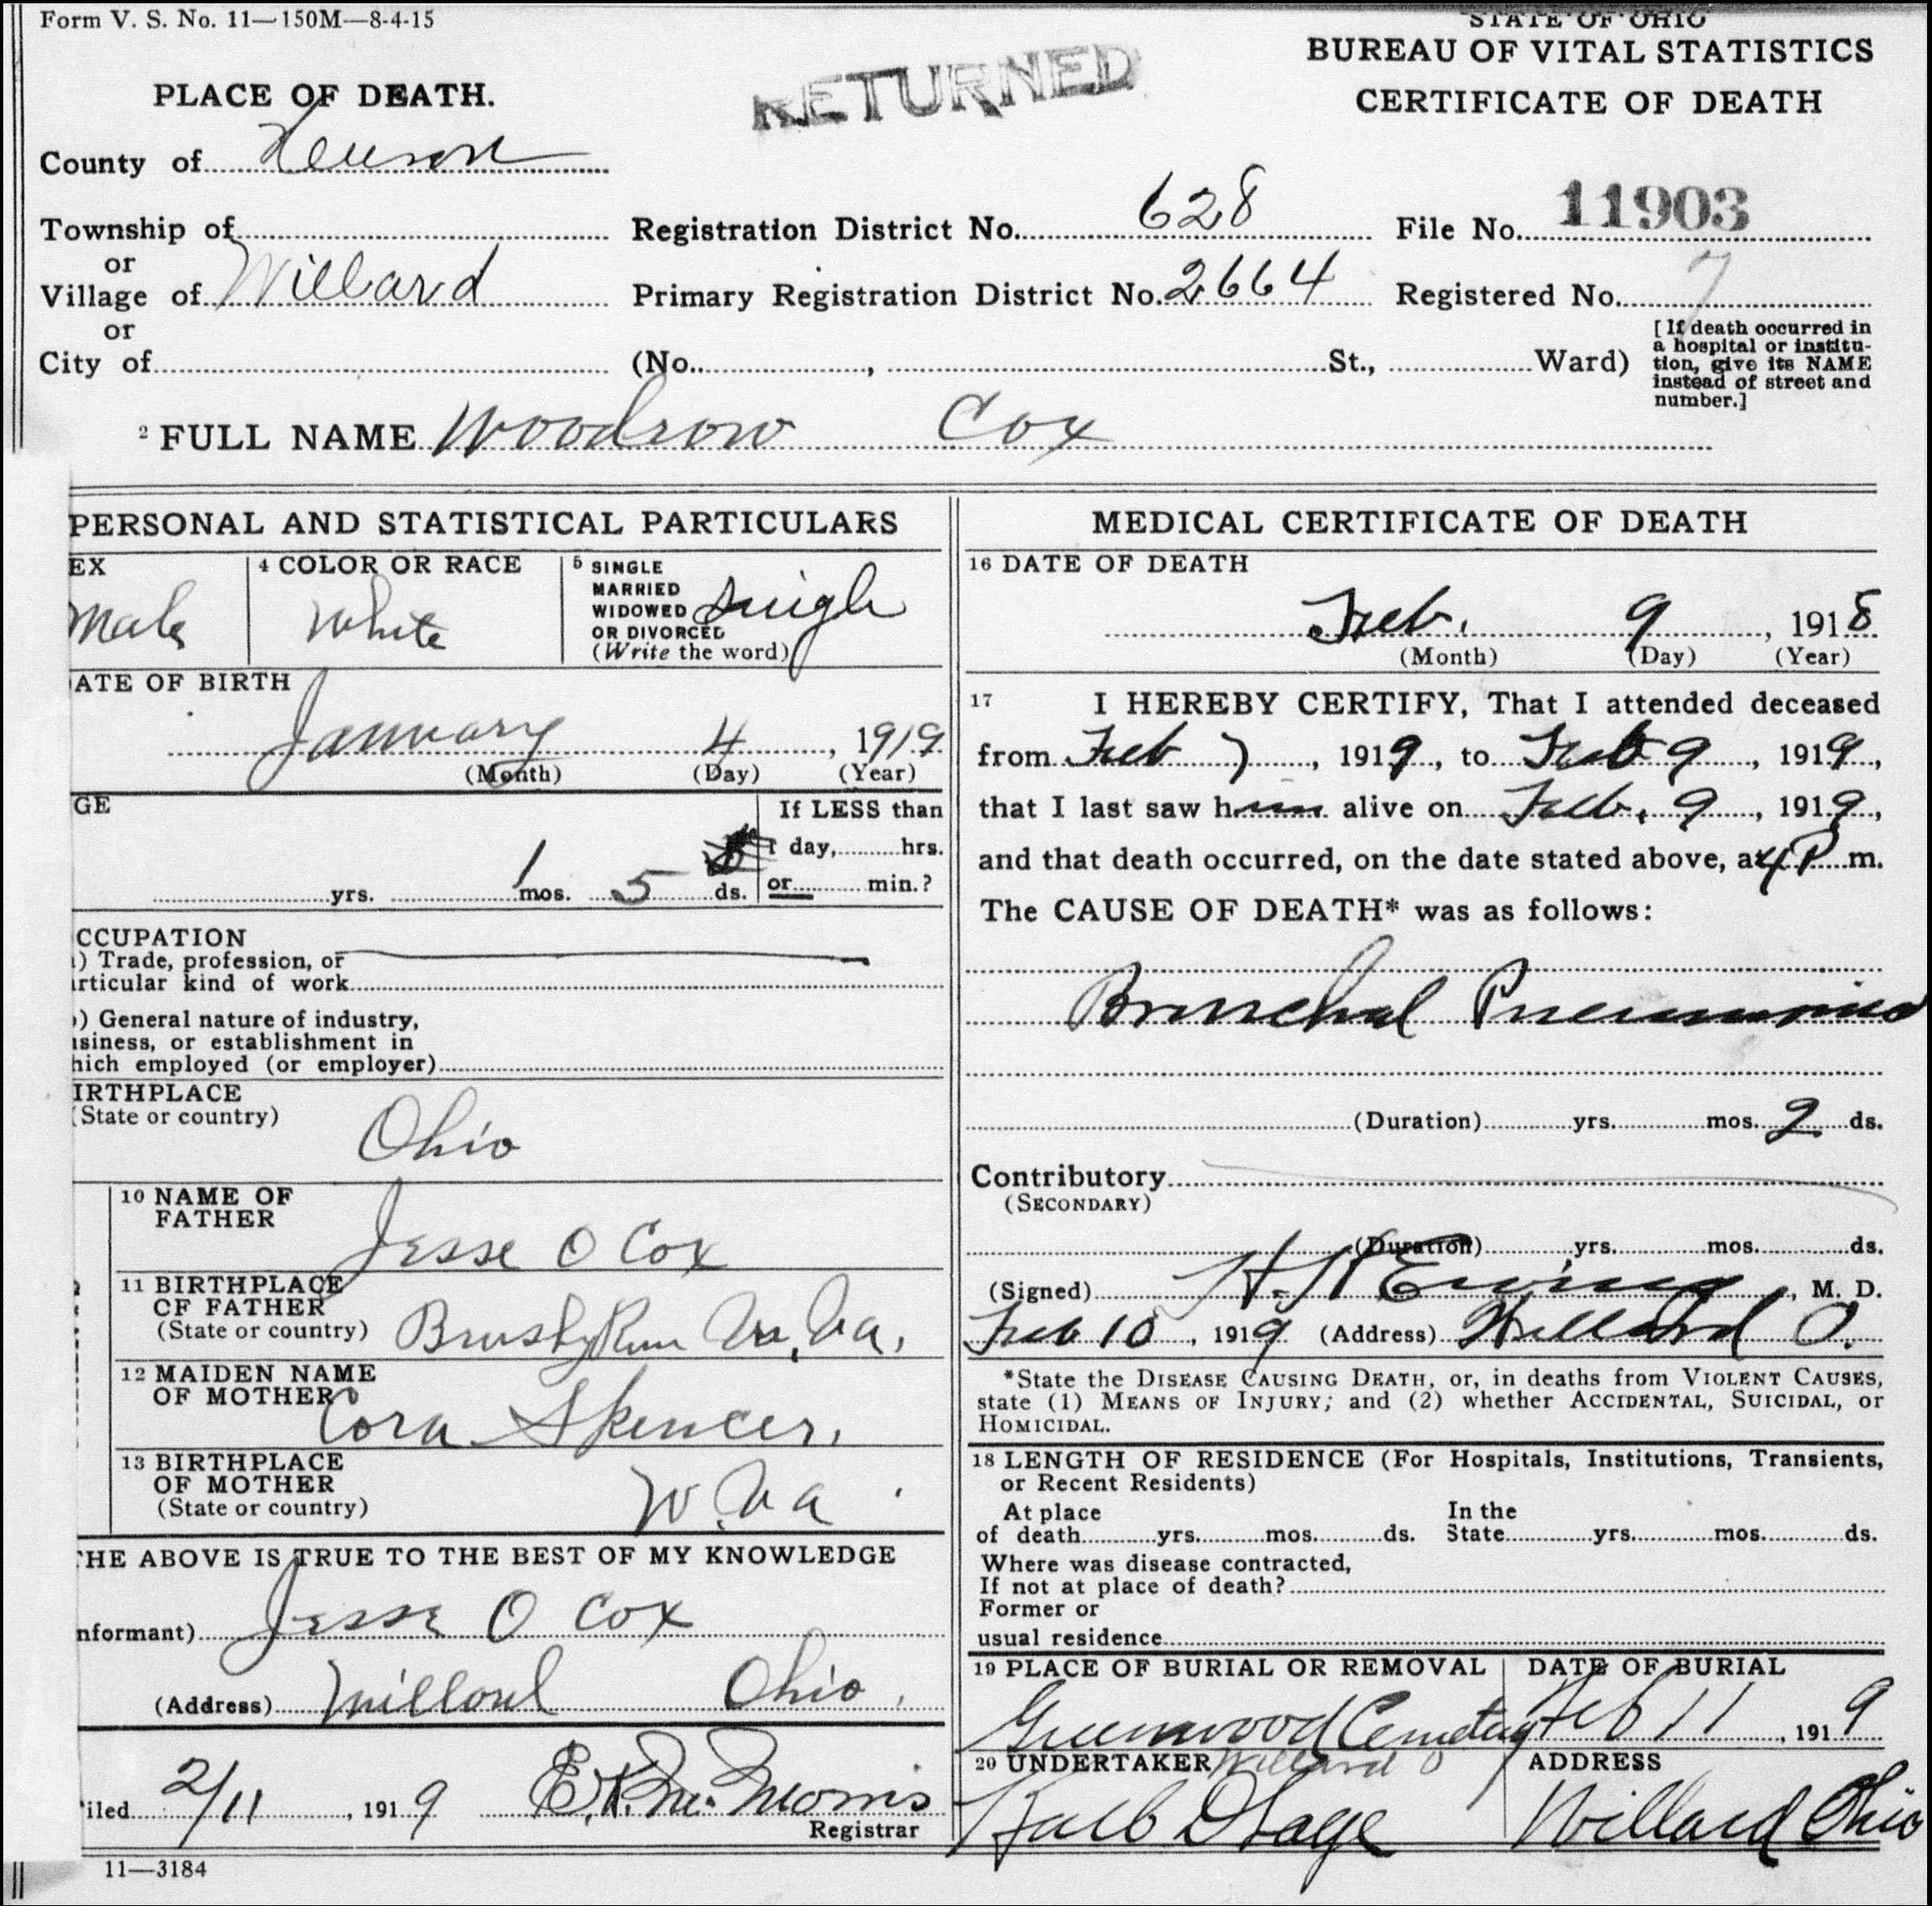 Form V. S. No. 11—150M—8-4-15
STATE OF OHIO
BUREAU OF VITAL STATISTICS
CERTIFICATE OF DEATH
RETURNED
PLACE OF DEATH.
County of
Township of
Registration District No. 628
File No. 11903
or
Village of Willard
Primary Registration District No. 2664
Registered No. 7
or
City of
(No. , St., Ward)
[If death occurred in
a hospital or institu-
tion, give its NAME
instead of street and
number.]
2 FULL NAME Woodrow Cox
PERSONAL AND STATISTICAL PARTICULARS
EX
Male
4 COLOR OR RACE
White
5 SINGLE
MARRIED
WIDOWED
OR DIVORCED
(Write the word)
Single
ATE OF BIRTH
January 4, 1919
(Month) (Day) (Year)
GE
If LESS than
1 day, hrs.
or min.?
yrs. 1 mos. 5 ds.
CCUPATION
) Trade, profession, or
articular kind of work
) General nature of industry,
usiness, or establishment in
hich employed (or employer)
IRTHPLACE
(State or country)
Ohio
10 NAME OF
FATHER
Jesse O Cox
11 BIRTHPLACE
OF FATHER
(State or country)
Brushy Run W. Va.
12 MAIDEN NAME
OF MOTHER
Cora Spencer.
13 BIRTHPLACE
OF MOTHER
(State or country)
W. Va
HE ABOVE IS TRUE TO THE BEST OF MY KNOWLEDGE
nformant) Jesse O Cox
(Address) Willard Ohio.
iled 2/11, 1919
Registrar
11—3184
MEDICAL CERTIFICATE OF DEATH
16 DATE OF DEATH
Feb. 9, 1918
(Month) (Day) (Year)
17 I HEREBY CERTIFY, That I attended deceased
from Feb 7, 1919, to Feb 9, 1919,
that I last saw him alive on Feb. 9, 1919,
and that death occurred, on the date stated above, at 4 P m.
The CAUSE OF DEATH* was as follows:
Bronchal Pneumonia
(Duration) yrs. mos. 2 ds.
Contributory
(SECONDARY)
(Duration) yrs. mos. ds.
(Signed) Ewing, M. D.
Feb 10, 1919 (Address) Willard O.
*State the DISEASE CAUSING DEATH, or, in deaths from VIOLENT CAUSES,
state (1) MEANS OF INJURY; and (2) whether ACCIDENTAL, SUICIDAL, or
HOMICIDAL.
18 LENGTH OF RESIDENCE (For Hospitals, Institutions, Transients,
or Recent Residents)
At place
of death yrs. mos. ds.
In the
State yrs. mos. ds.
Where was disease contracted,
If not at place of death?
Former or
usual residence
19 PLACE OF BURIAL OR REMOVAL
Greenwood Cemetery
Willard O
DATE OF BURIAL
Feb 11, 1919
20 UNDERTAKER
ADDRESS
Willard Ohio